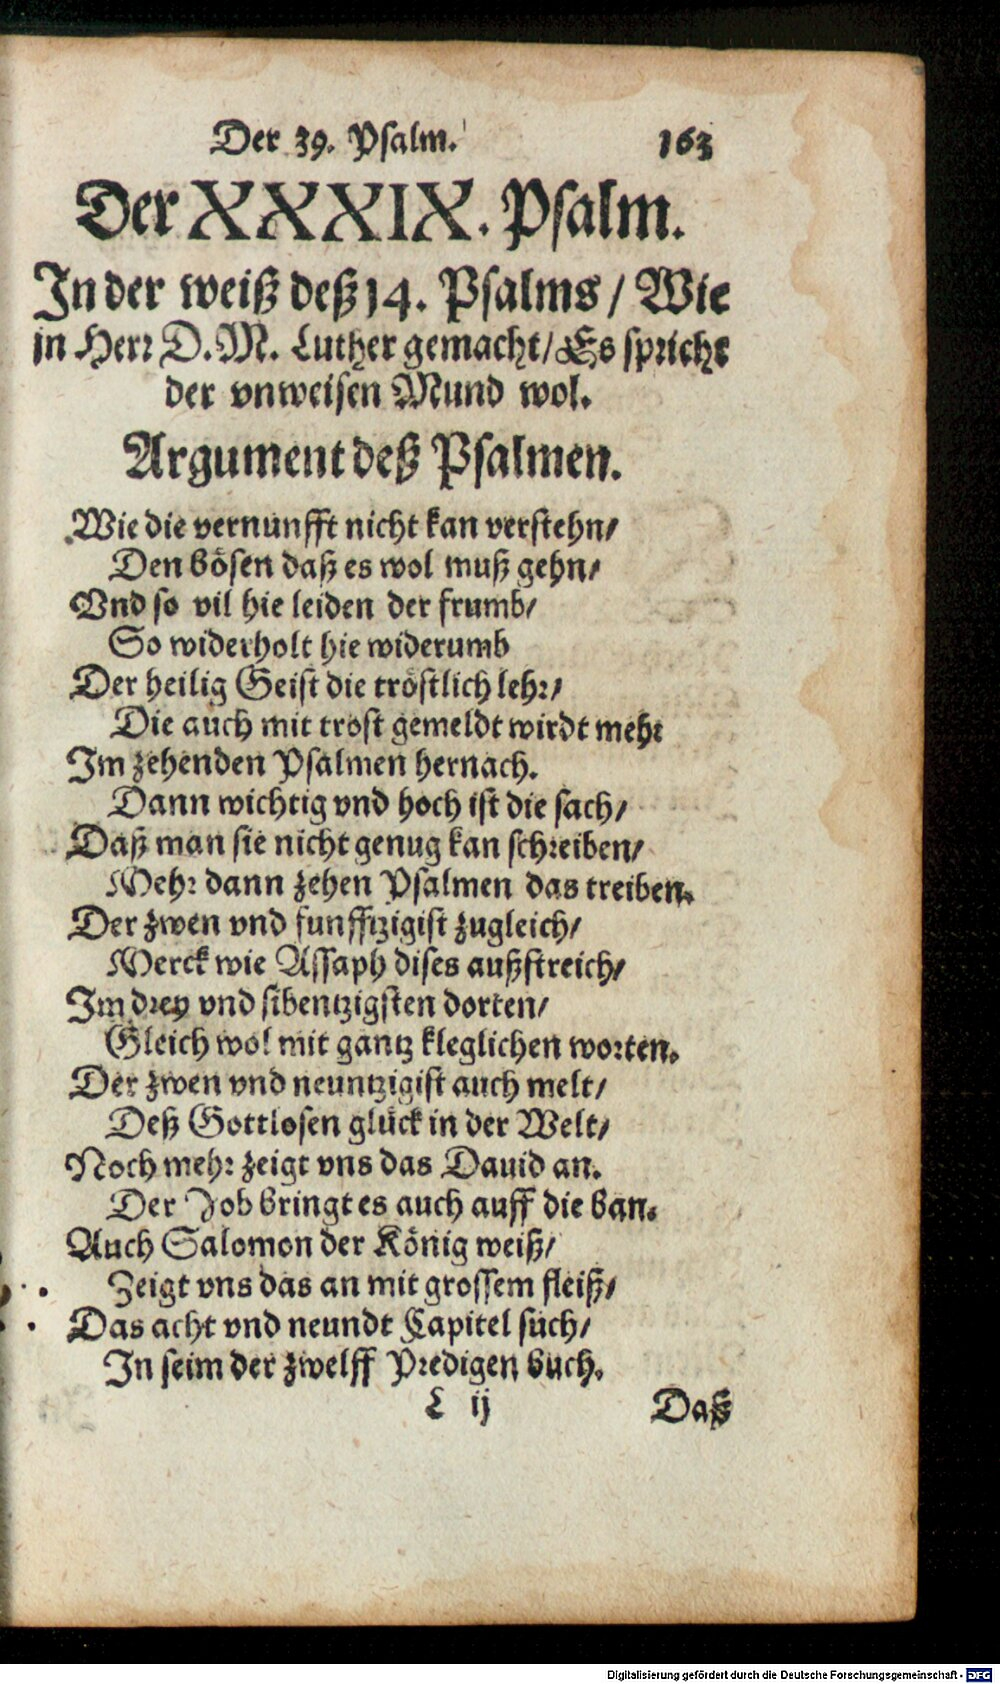 Der 39. Psalm. 163
Der XXXIX. Psalm.
In der weiß deß 14. Psalms / Wie
in Herr D. M. Luther gemacht / Es spricht
der vnweisen Mund wol.
Argument deß Psalmen.
Wie die vernunfft nicht kan verstehn /
Den bösen daß es wol muß gehn /
Vnd so vil hie leiden der frumb /
So widerholt hie widerumb
Der heilig Geist die tröstlich lehr /
Die auch mit trost gemeldt wirdt mehr
Im zehenden Psalmen hernach.
Dann wichtig vnd hoch ist die sach /
Daß man sie nicht genug kan schreiben /
Mehr dann zehen Psalmen das treiben.
Der zwen vnd funfftzigist zugleich /
Merck wie Assaph dises außstreich /
Im drey vnd sibentzigsten dorten /
Gleich wol mit gantz kleglichen worten.
Der zwen vnd neuntzigist auch melt /
Deß Gottlosen glück in der Welt /
Noch mehr zeigt vns das Dauid an.
Der Job bringt es auch auff die ban.
Auch Salomon der König weiß /
Zeigt vns das an mit grossem fleiß /
Das acht vnd neundt Capitel such /
In seim der zwelff Predigen buch.
L ij Daß
Digitalisierung gefördert durch die Deutsche Forschungsgemeinschaft - DFG